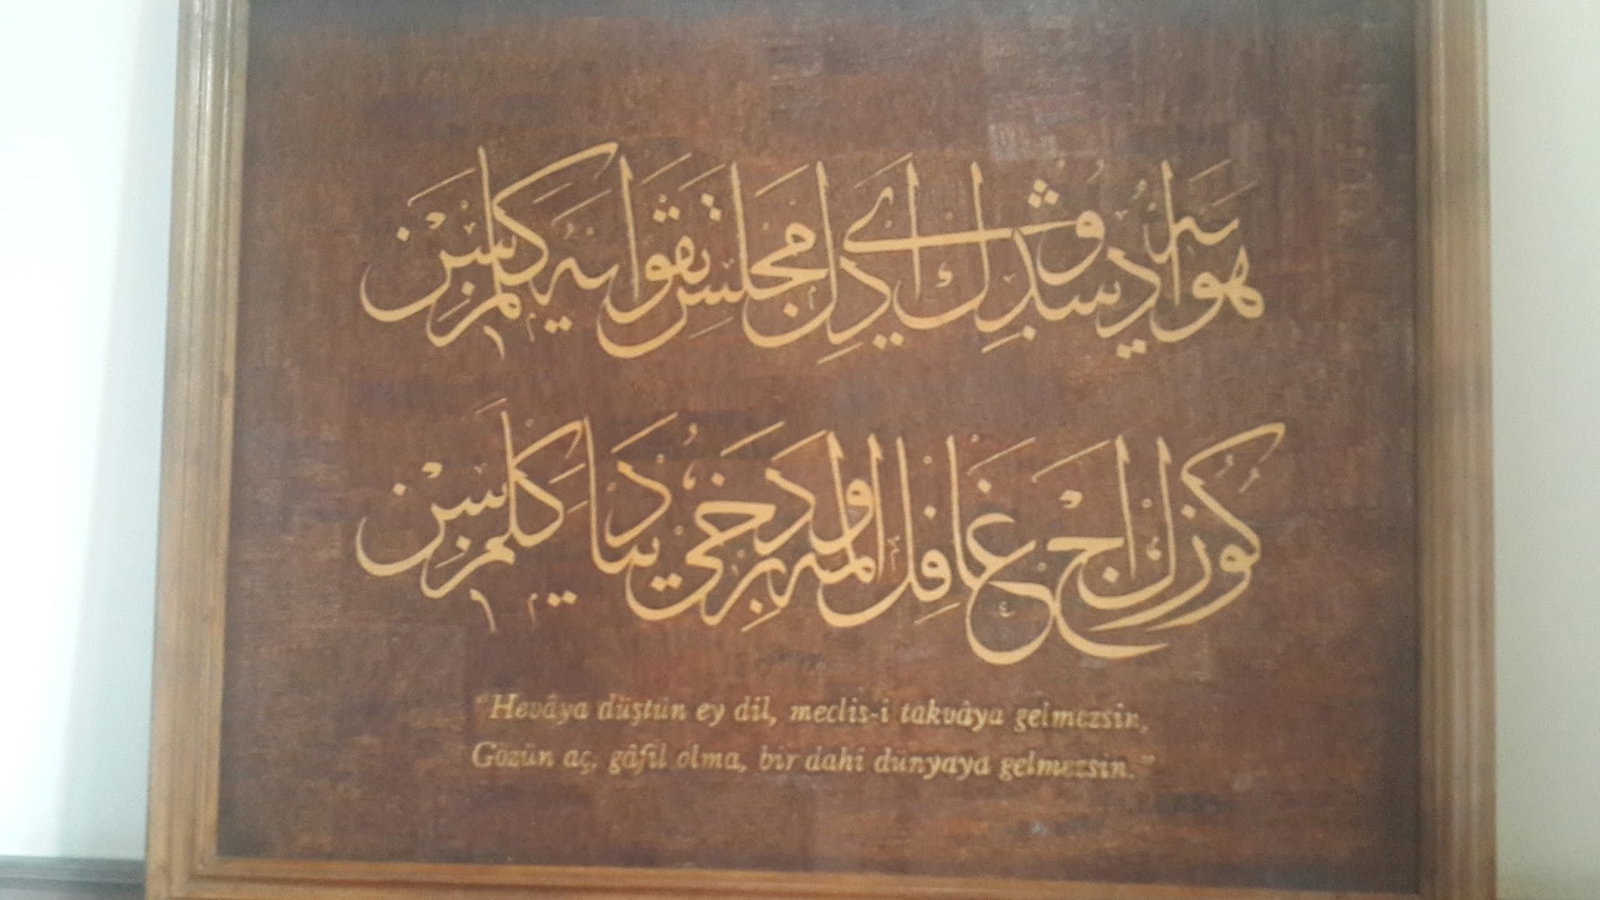 هوايه دوشدك اى دل مجلس تقوايه كلمزسين
كوزك اچ غافل اولمه بر دخى دنيايه كلمزسين
"Hevâya düştün ey dil, meclis-i takvâya gelmezsin,
Gözün aç, gâfil olma, bir dahi dünyaya gelmezsin."